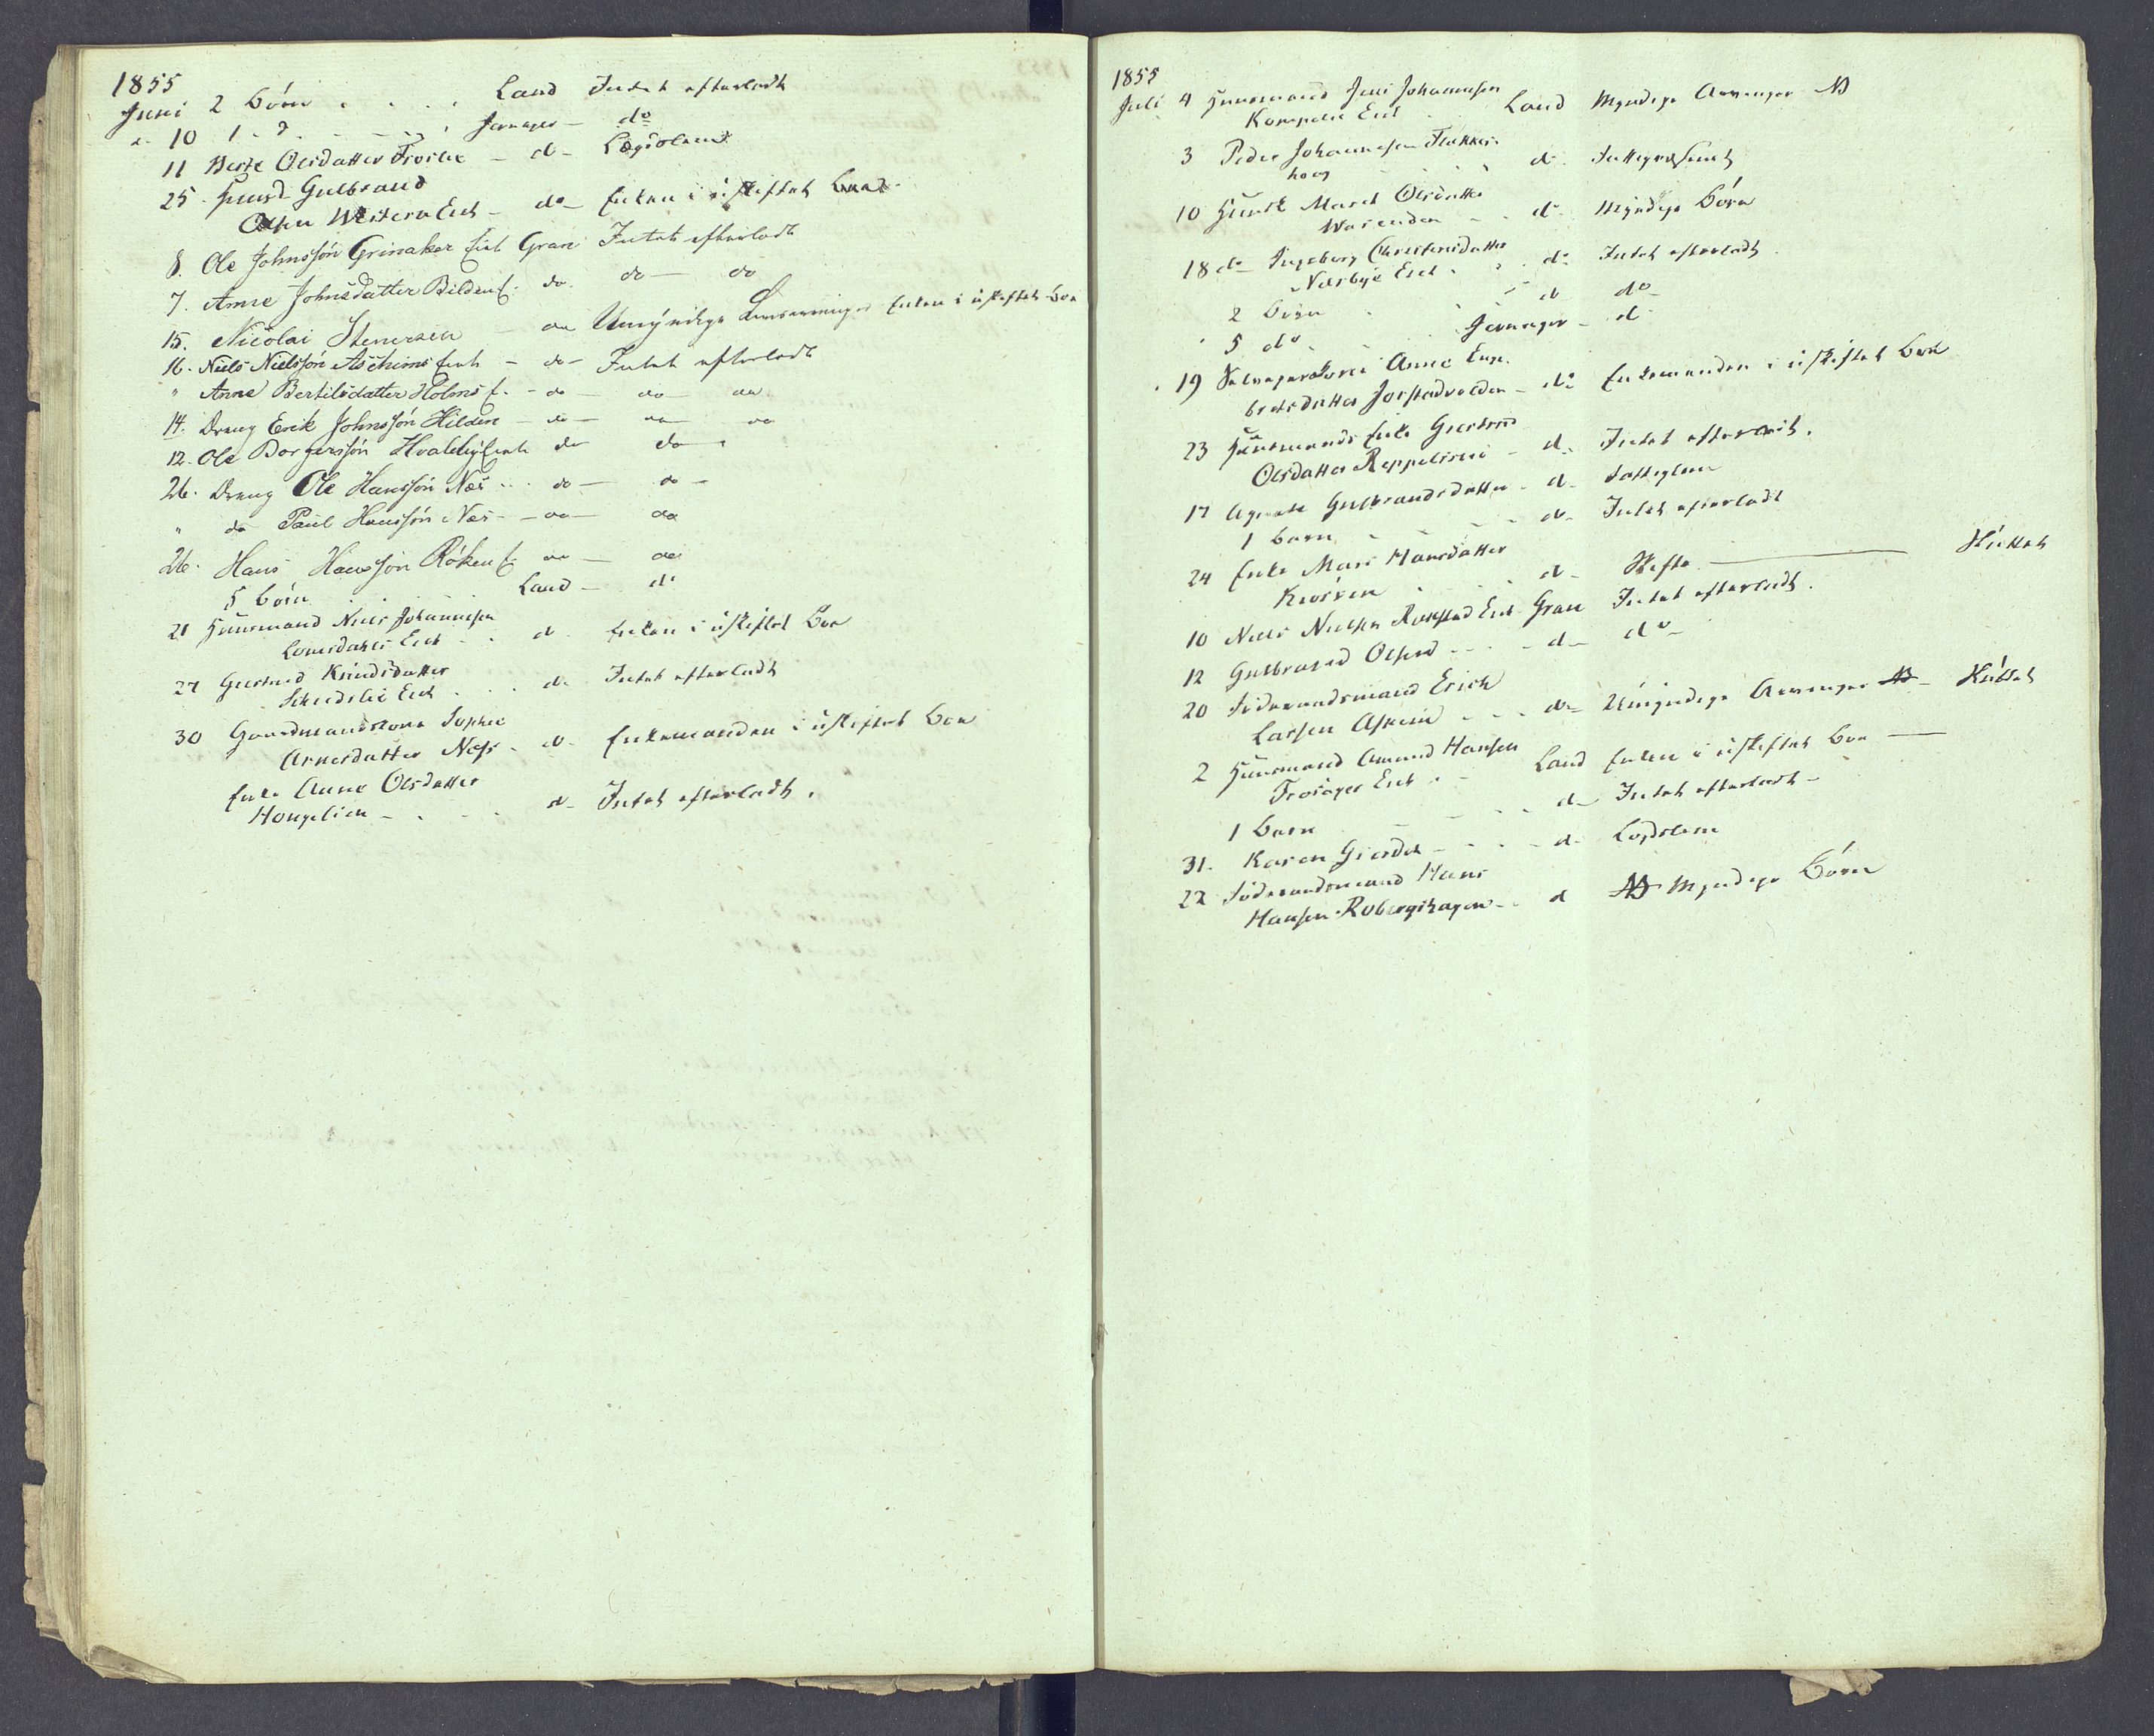 1855
Juni 2 Börn . . . . Land Intet efterladt
" 10 1 - d. - - - - Jevnager - do
11 Berte Olsdatter - d - Lægdslem
25. Huusmd Gulbrand
Olsen Western Eiet - do - Enken i uskiftet Boe
8. Ole Johnssön Grinaker Eiet Gran Intet efterladt
7. Anne Johnsdatter Bilden E. do. do - do
15. Nicolai Stenersen - do Umyndige Livsarvinger Enken i uskiftet Boe
16. Niels Nielssön Aschims Eiet - do - Intet efterladt
" Anne Bertilsdatter Holms E. - do - do - do
14. Dreng Erik Johnssön Hilden - do - do - do
12. Ole Borgerssön Hvalebye Eiet do do
26. Dreng Ole Hanssön Næs - - do - do -
" do Paul Hanssön Næs - - do - do
26. Hans Hanssön Röken E. do - do
5 Börn . . . Land - do
21 Huusmand Niels Johannesen
Eiet - . d - Enken i uskiftet Boe
27 Gertrud Knudsdatter
Eiet . . . d. Intet efterladt
30 Gaardmandskone Sophie
Arnesdatter Næss . d. Enkemanden i uskiftet Boe
Enke Anne Olsdatter
Hongelien - . . . d - Intet efterladt .
1855
Juli 4 Huusmand Jens Johannesen
Eiet . . Land Myndige Arvinger
3 Peder Johannesen Flakkes-
houg . . . d. Fattiglem
10 Marit Olsdatter
. . d. Myndige Börn
18 do Ingeborg Christensdatter
Nærbye Eiet . . . d. Intet efterladt .
2 Börn . . d do -
5 do . . . Jevnager - d.
19 Anne Enge-
bretsdatter - do Enkemanden i uskiftet Boe
23 Huusmands Enke Gertrud
Olsdatter - d. Intet efterladt .
17 Agnethe Gulbrandsdatter - d - Fattiglem
1 Barn . - - - d - Intet efterladt
24 Enke Mari Hansdatter
. . . d - Skifte - Sluttet
10 Niels Nielsen Eiet Gran Intet efterladt .
12 Gulbrand Olsen - - - - d - do -
20 Föderaadsmand Erich
Larsen Askim . . . do Umyndige Arvinger - Sluttet
2 Huusmand Amund Hansen
Eiet . - Land Enken i uskiftet Boe -
1 Barn - - . . d - Intet efterladt -
31. Karen - . . . d - Lægdslem
22 Föderaadsmand Hans
Hansen Robergshagen - . d Myndige Börn